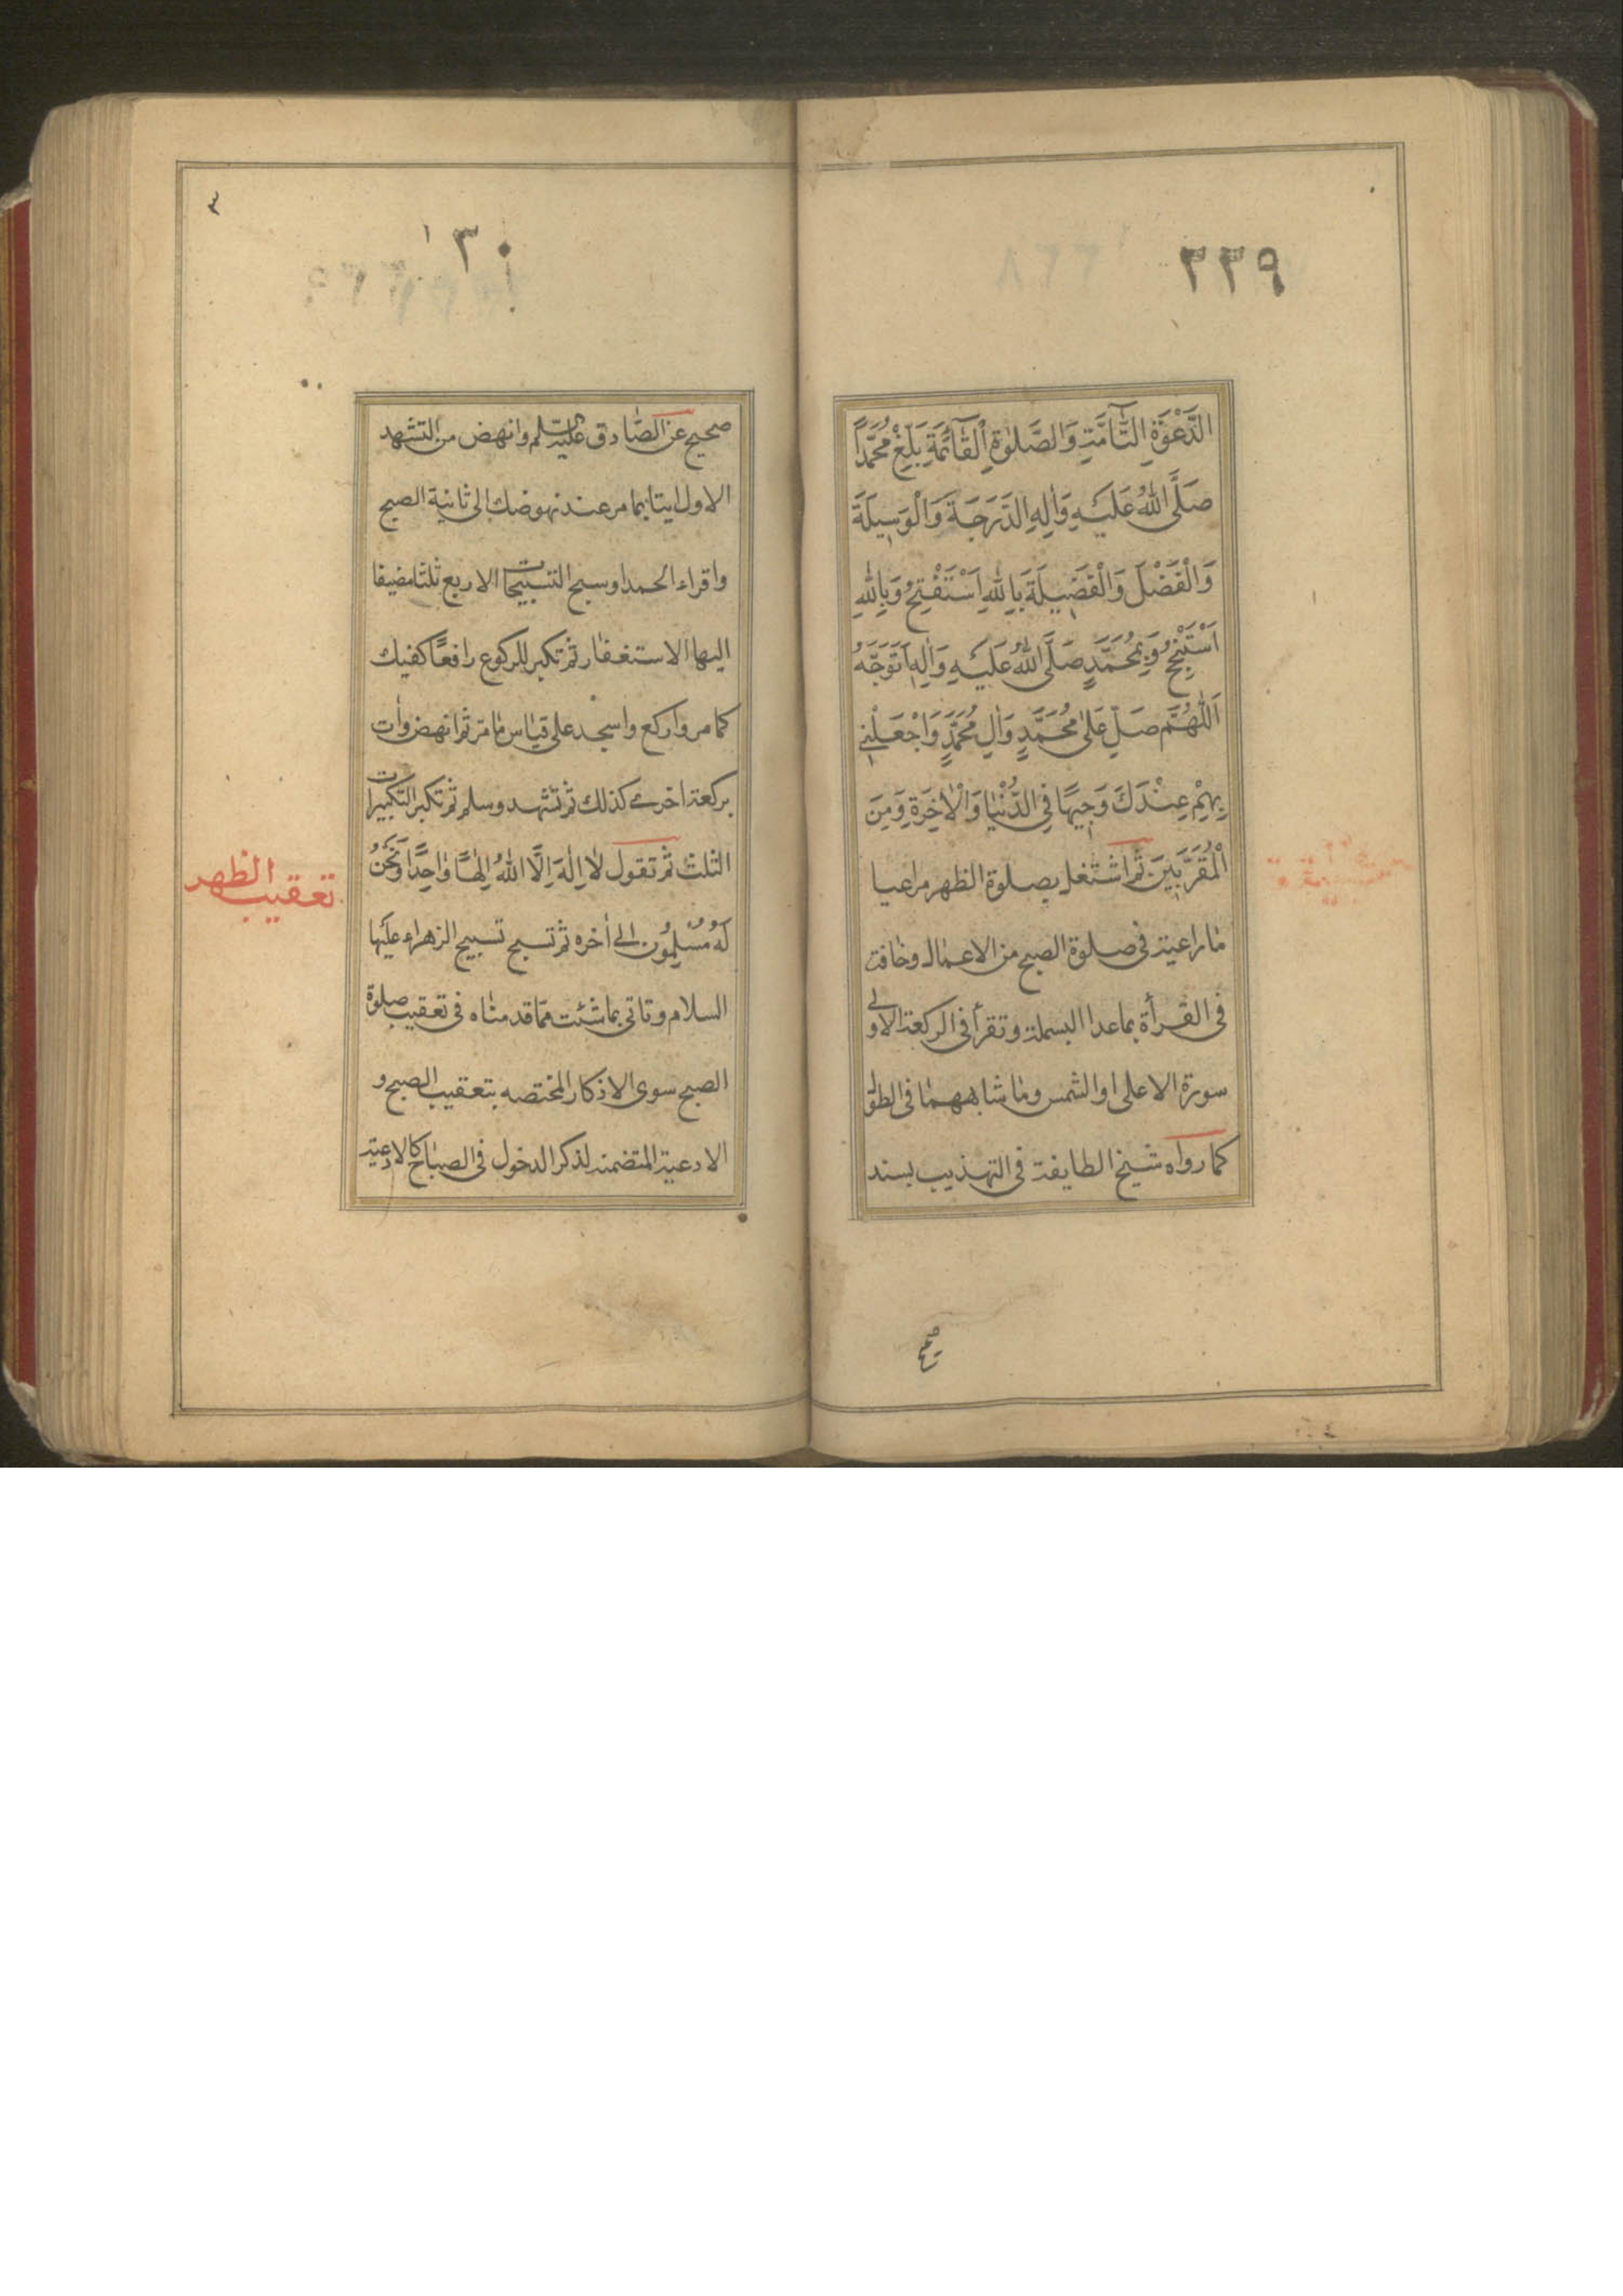 ٢٣٩
الدَّعْوَةِ التَّآمَّةِ وَالصَّلٰوةِ الْقَآئِمَةِ بَلِّغْ مُحَمَّدًا
صَلَّى اللّٰهُ عَلَيْهِ وَاٰلِهِ الدَّرَجَةَ وَالْوَسِيلَةَ
وَالْفَضْلَ وَالْفَضِيلَةَ بِاللّٰهِ اَسْتَفْتِحُ وَبِاللّٰهِ
اَسْتَنْجِحُ وَبِمُحَمَّدٍ صَلَّى اللّٰهُ عَلَيْهِ وَاٰلِهِ اَتَوَجَّهُ
اَللّٰهُمَّ صَلِّ عَلٰى مُحَمَّدٍ وَاٰلِ مُحَمَّدٍ وَاجْعَلْنِي
بِهِمْ عِنْدَكَ وَجِيهًا فِي الدُّنْيَا وَالْاٰخِرَةِ وَمِنَ
الْمُقَرَّبِينَ ثم اشتغل بصلوة الظهر مراعيا
ما راعيته فى صلوة الصبح من الاعمال وخافت
فى القرأة بما عدا البسملة وتقرأ فى الركعة الاولى
سورة الاعلى او الشمس وما شابههما فى الطول
كما رواه شيخ الطايفة فى التهذيب بسند
صحيح
٣
٣٠
صحيح عن الصادق عليه السلم وانهض من التشهد
الاول ايتا بما مر عند نهوضك الى ثانية الصبح
واقراء الحمد او سبح التسبيحات الاربع ثلثا مضيفا
اليها الاستغفار ثم تكبر للركوع رافعًا كفيك
كما مر واركع واسجد على قياس ما مر ثم انهض وأت
بركعة اخرى كذلك ثم تشهد وسلم ثم تكبر التكبيرات
الثلث ثم تقول لَا اِلٰهَ اِلَّا اللّٰهُ اِلٰهًا وَاحِدًا وَنَحْنُ
لَهُ مُسْلِمُونَ الى أخره ثم تسبح تسبيح الزهراء عليها
السلام وتاتى بما شئت مما قدمناه فى تعقيب صلوة
الصبح سوى الاذكار المختصه بتعقيب الصبح و
الادعية المتضمنه لذكر الدخول فى الصباح كالادعية
تعقيب الظهر